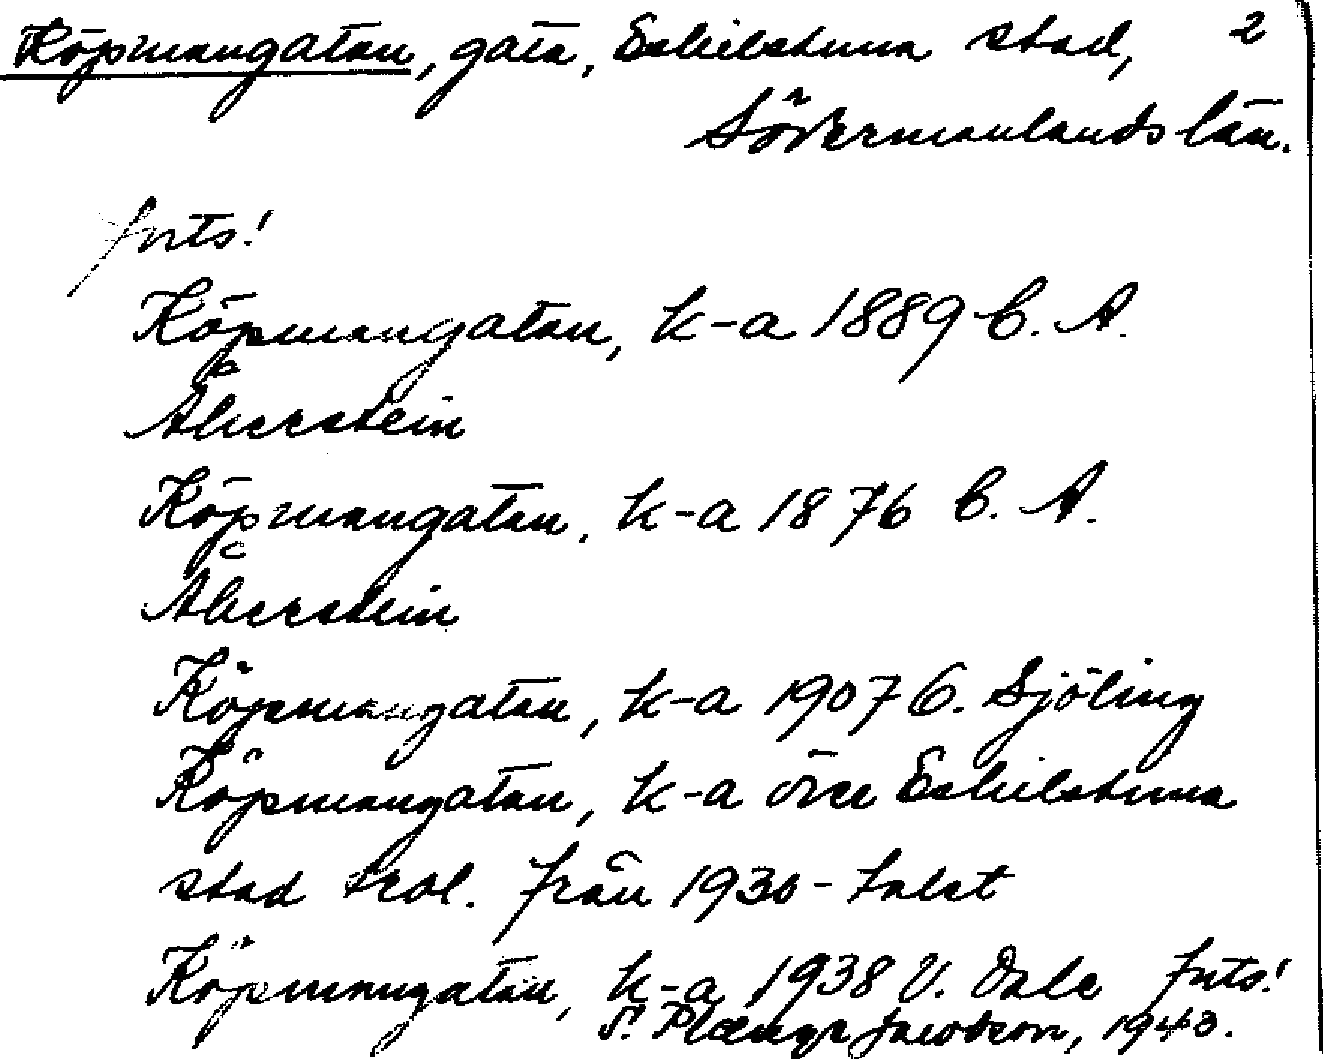 Köpmangatan, gata, Eskilstuna stad, 2
Södermanlands län.
forts!
Köpmangatan, k-a 1889 C. A.
Åkerstein
Köpmangatan, k-a 1876 C. A.
Åkerstein
Köpmangatan, k-a 1907 G. Sjöling
Köpmangatan, k-a över Eskilstuna
stad trol. från 1930-talet
Köpmangatan, k-a 1938 V. Dale forts!
Jacobson, 1943.